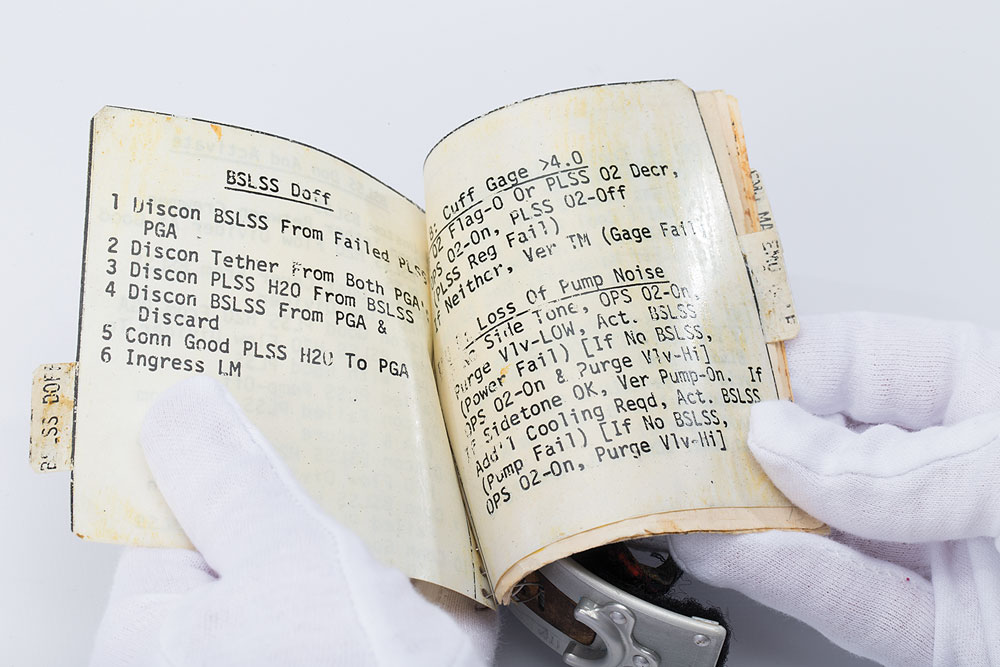 BSLSS Doff
1 Discon BSLSS From Failed PLSS
PGA
2 Discon Tether From Both PGA's
3 Discon PLSS H2O From BSLSS
4 Discon BSLSS From PGA &
Discard
5 Conn Good PLSS H2O To PGA
6 Ingress LM
BSLSS DOFF
Cuff Gage >4.0
O2 Flag-O Or PLSS O2 Decr,
OPS O2-On, PLSS O2-Off
(PLSS Reg Fail)
If Neither, Ver TM (Gage Fail)
Loss Of Pump Noise
No Side Tone, OPS O2-On,
Purge Vlv-LOW, Act. BSLSS
(Power Fail) [If No BSLSS,
OPS O2-On & Purge Vlv-Hi]
If Sidetone OK, Ver Pump-On. If
Add'l Cooling Reqd, Act. BSLSS
(Pump Fail) [If No BSLSS,
OPS O2-On, Purge Vlv-Hi]